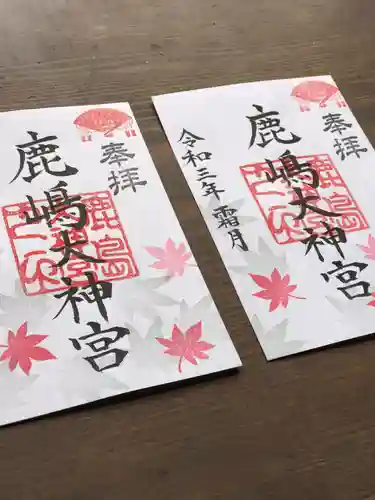 奉拝
鹿嶋大神宮
奉拝
鹿嶋大神宮
令和三年霜月